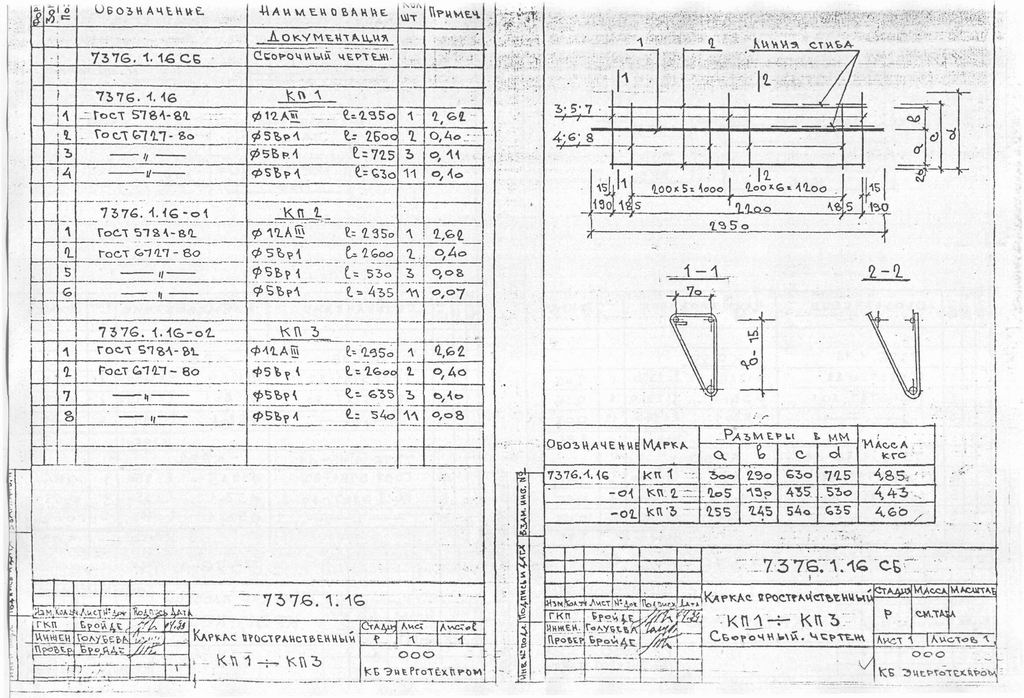 Обозначение Наименование шт Примеч.
Документация
7376.1.16 СБ Сборочный чертеж.
7376.1.16 КП 1
1 ГОСТ 5781-82 ф12АIII ℓ=2950 1 2,62
2 ГОСТ 6727-80 ф5Вр1 ℓ=2600 2 0,40
3 —〃— ф5Вр1 ℓ=725 3 0,11
4 —〃— ф5Вр1 ℓ=630 11 0,10
7376.1.16-01 КП 2
1 ГОСТ 5781-82 ф12АIII ℓ=2950 1 2,62
2 ГОСТ 6727-80 ф5Вр1 ℓ=2600 2 0,40
5 —〃— ф5Вр1 ℓ=530 3 0,08
6 —〃— ф5Вр1 ℓ=435 11 0,07
7376.1.16-02 КП 3
1 ГОСТ 5781-82 ф12АIII ℓ=2950 1 2,62
2 ГОСТ 6727-80 ф5Вр1 ℓ=2600 2 0,40
7 —〃— ф5Вр1 ℓ=635 3 0,10
8 —〃— ф5Вр1 ℓ=540 11 0,08
7376.1.16
Изм. Кол.уч Лист № док Подпись Дата
ГКП Бройде
Инжен Голубева
Провер. Бройде
Каркас пространственный
КП1 ÷ КП3
Стадия Лист Листов
Р 1 1
ООО
КБ Энерготехпром
1 2 Линия сгиба
1 2
3;5;7
4;6;8
a b c d
20
15 1 200х5=1000 200х6=1200 2 15
190 185 2200 185 190
2950
1-1 2-2
70
15
Обозначение Марка Размеры в мм Масса кгс
a b c d
7376.1.16 КП 1 300 290 630 725 4,85
-01 КП 2 205 190 435 530 4,43
-02 КП 3 255 245 540 635 4,60
Взам. инв. №
Подпись и дата
Инв. № подл
7376.1.16 СБ
Изм Кол.уч Лист № док Подпись Дата
ГКП Бройде
Инжен. Голубева
Провер. Бройде
Каркас пространственный
КП1 ÷ КП3
Сборочн. чертеж
Стадия Масса Масштаб
Р см.табл
Лист 1 Листов 1
ООО
КБ Энерготехпром